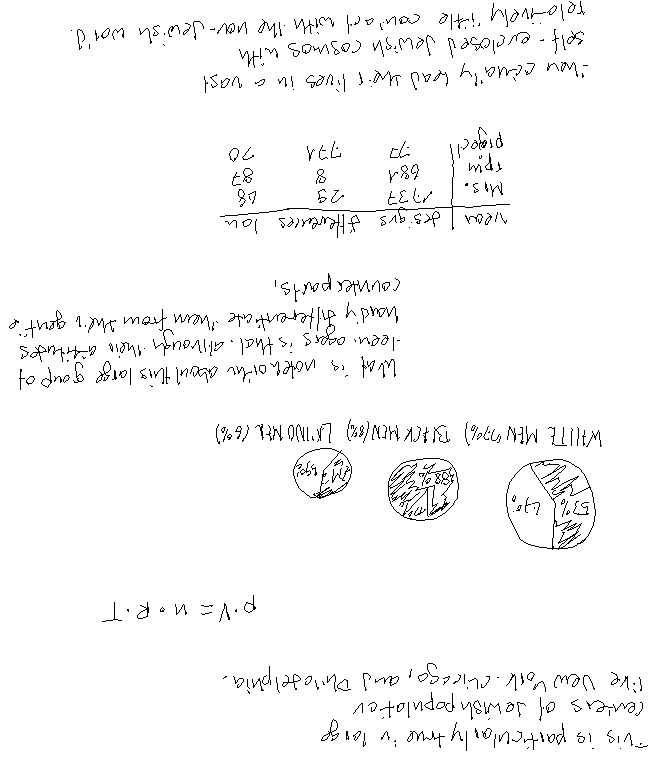 This is particularly true in large
centers of Jewish population
like New York. Chicago, and Philadelphia.
p·V = n·R·T
53% 47% 88% 59%
WHITE MEN 77%) BLACK MEN (8%) LATINO MEN (6%)
What is about this large group of
teen-agers is that. although their attitudes
hardly differentiate them from their gentile
counterparts,
year designs differences lou
Mrs. 1737 29 48
rpm 681 8 87
project 77 771 70
they actually lead their lives in a vast
self-enclosed Jewish cosmos with
relatively little contact with the non-Jewish world.